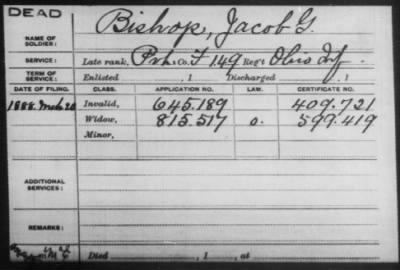 DEAD
NAME OF SOLDIER: Bishop, Jacob G.
SERVICE: Late rank, Prt. Co. F 149 Reg't Ohio Inf.
TERM OF SERVICE: Enlisted , 1 Discharged , 1
DATE OF FILING. CLASS. APPLICATION NO. LAW. CERTIFICATE NO.
1888. Mch 20 Invalid, 645.189 409.721
Widow, 815.517 o. 599.419
Minor,
ADDITIONAL SERVICES:
REMARKS:
Died , 1 , at